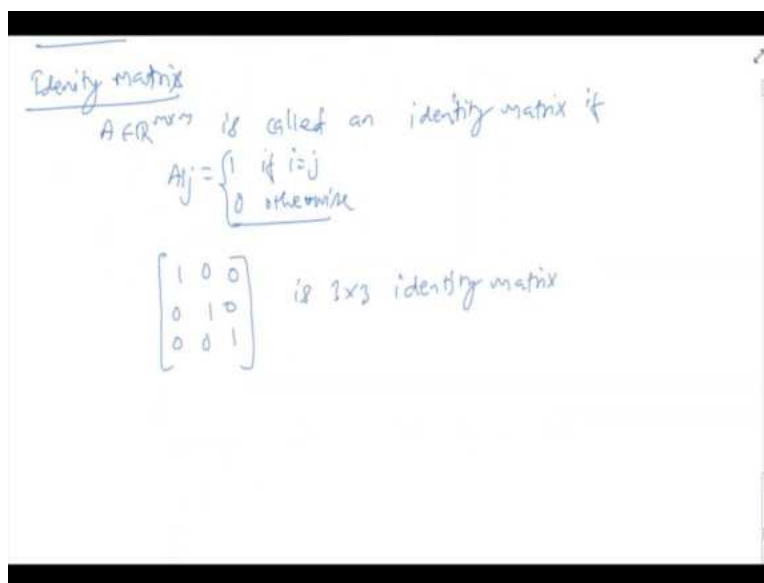 Idenity matrix
A ∈ ℝ^{m×n} is called an identity matrix if
Aij = { 1 if i=j
0 otherwise
[ 1 0 0
0 1 0
0 0 1 ] is 3x3 identity matrix